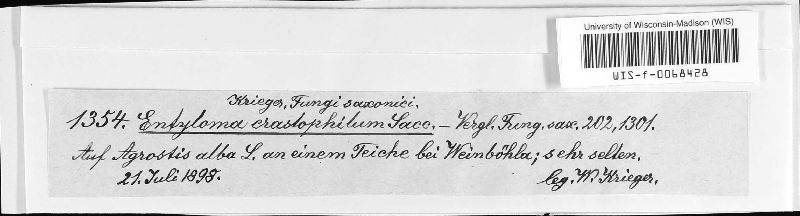 University of Wisconsin-Madison (WIS)
WIS-f-0068428
Krieger, Fungi saxonici.
1354. Entyloma crastophilum Sacc. – Vergl. Fung. sax. 202, 1301.
Auf Agrostis alba L. an einem Teiche bei Weinböhla; sehr selten.
21. Juli 1898. leg. W. Krieger.